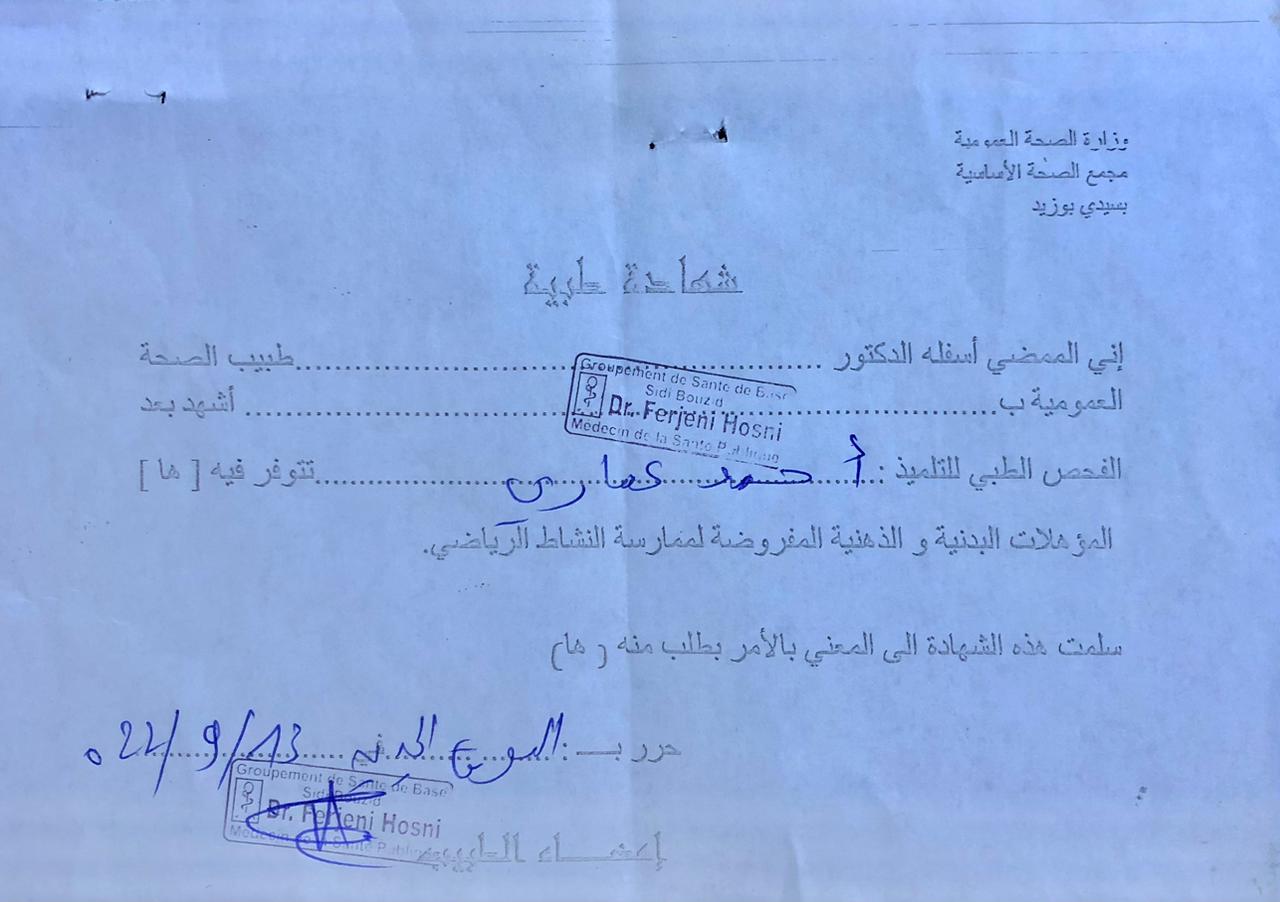 وزارة الصحة العمومية
مجمع الصحة الأساسية
بسيدي بوزيد
شهادة طبية
إني الممضي أسفله الدكتور ............ طبيب الصحة
Groupement de Sante de Base
Sidi Bouzid
Dr. Ferjeni Hosni
Médecin de la Santé Publique
العمومية ب............ أشهد بعد
الفحص الطبي للتلميذ : أحمد عماري ............ تتوفر فيه [ ها ]
المؤهلات البدنية و الذهنية المفروضة لممارسة النشاط الرياضي.
سلمت هذه الشهادة الى المعني بالأمر بطلب منه ( ها)
حرر بــ : في 13/9/22
Groupement de Sante de Base
Sidi Bouzid
Dr. Ferjeni Hosni
Médecin de la Santé Publique
إمضاء الطبيب